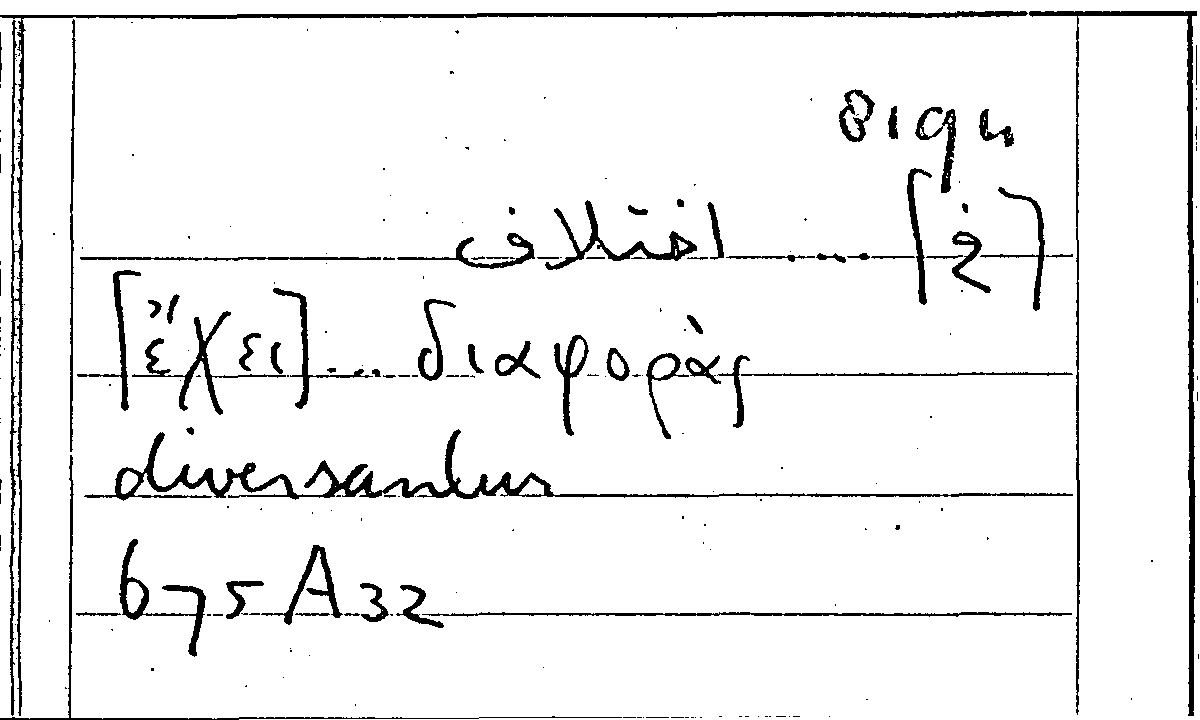 8194
[في] .... اختلاف
[ἔχει] .... διαφοράς
diversantur
675 A 32